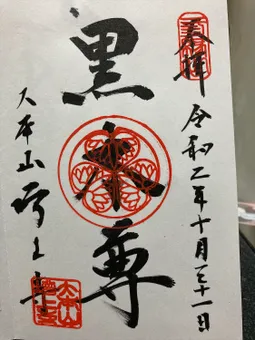 奉拝
令和二年十月三十一日
黒本尊
大本山増上寺